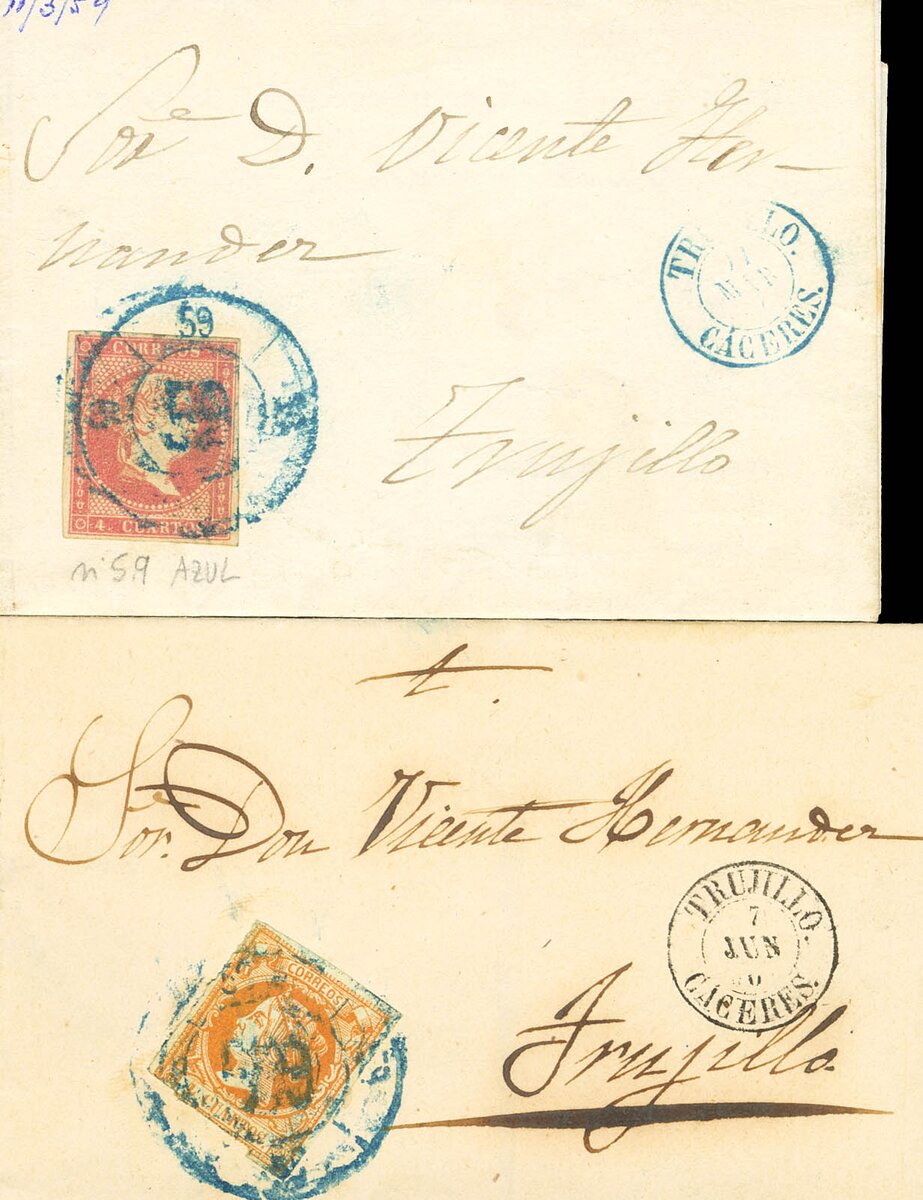 11/3/59
Sor. D. Vicente Her-
nandez
TRUJILLO.
MAR
CÁCERES.
59
CORREOS
4. CUARTOS
Trujillo
nº 59 AZUL
Sor. Don Vicente Hernandez
TRUJILLO.
7
JUN
CACERES.
CORREOS
Trujillo